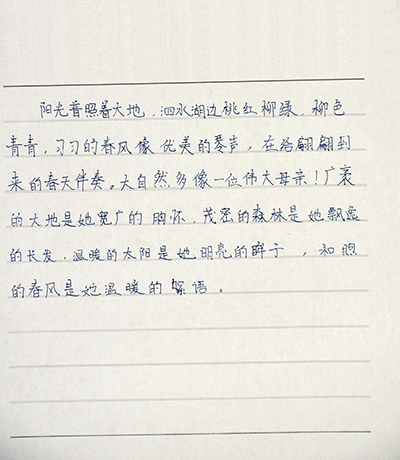 阳光普照着大地，泗水湖边桃红柳绿，柳色
青青，习习的春风像优美的琴声，在给翩翩到
来的春天伴奏。大自然多像一位伟大母亲！广袤
的大地是她宽广的胸怀，茂密的森林是她飘逸
的长发，温暖的太阳是她明亮的眸子，和煦
的春风是她温暖的絮语。